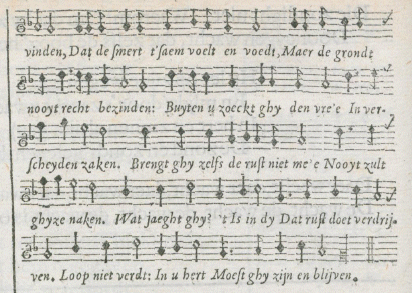 vinden, Dat de smert t'saem voelt en voedt, Maer de grondt
nooyt recht bezinden: Buyten u zoeckt ghy den vre'e In ver-
scheyden zaken. Brengt ghy zelfs de rust niet me'e Nooyt zult
ghyze naken. Wat jaeght ghy? 't Is in dy Dat rust doet verdrij-
ven. Loop niet verdt: In u hert Moest ghy zijn en blijven.